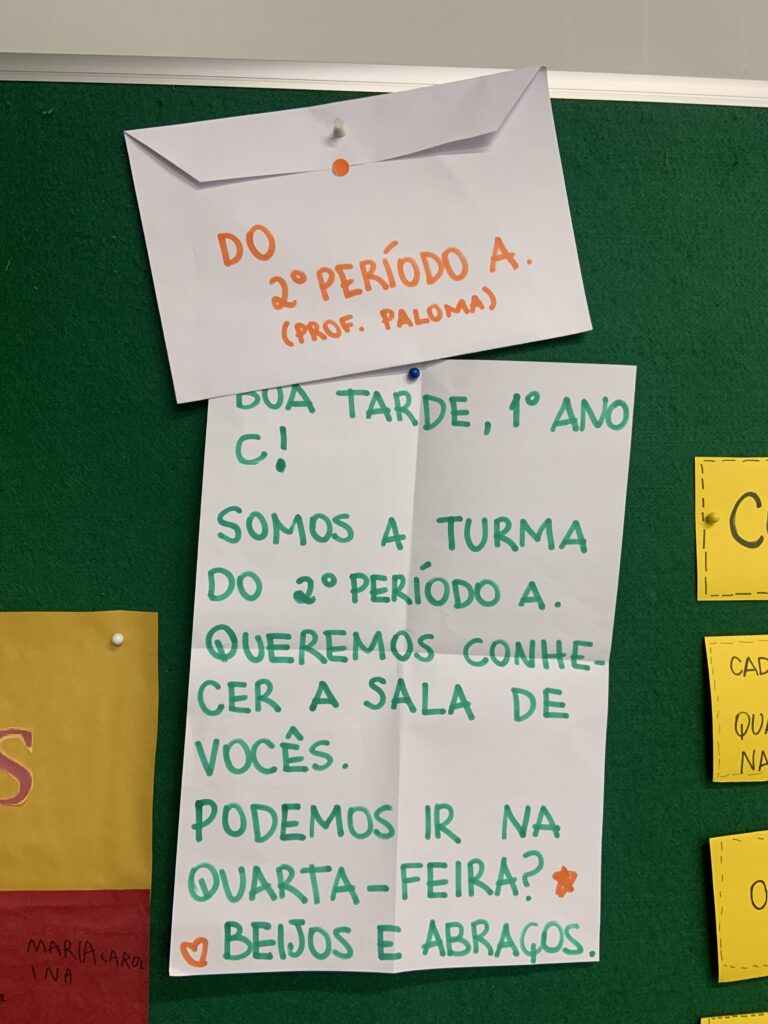 DO
2º PERÍODO A.
(PROF. PALOMA)
BOA TARDE, 1º ANO
C!
SOMOS A TURMA
DO 2º PERÍODO A.
QUEREMOS CONHE-
CER A SALA DE
VOCÊS.
PODEMOS IR NA
QUARTA-FEIRA?
BEIJOS E ABRAÇOS.
MARIA CAROL
INA